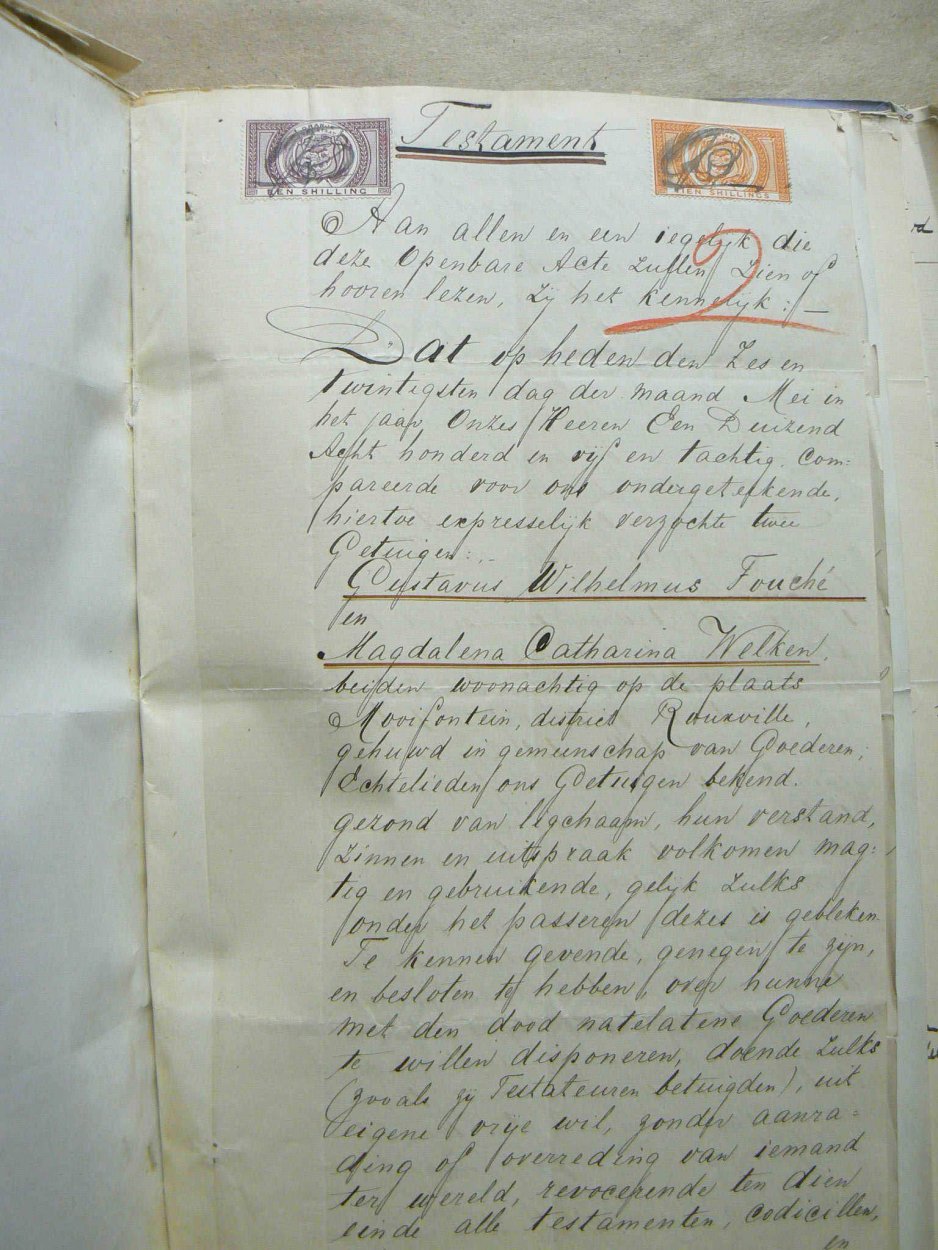 Testament
EEN SHILLING
TIEN SHILLINGS
2
Aan allen en een iegelijk die
deze Openbare Acte Zullen Zien of
hooren lezen, Zij het kennelijk:—
Dat op heden den Zes en
twintigsten dag der maand Mei in
het jaar Onzes Heeren Een Duizend
Acht honderd en vijf en tachtig, Com=
pareerde voor ons ondergetekende,
hiertoe expresselijk verzochte twee
Getuigen:..
Gustavus Wilhelmus Fouché
en
Magdalena Catharina Welken,
beiden woonachtig op de plaats
Mooifontein, district Rouxville,
gehuwd in gemeenschap van Goederen;
Echtelieden ons Getuigen bekend.
gezond van ligchaam, hun verstand,
Zinnen en uitspraak volkomen mag=
tig en gebruikende, gelijk Zulks
onder het passeren dezes is gebleken
Te kennen gevende, genegen te zijn,
en besloten te hebben, over hunne
met den dood natelatene Goederen
te willen disponeren, doende Zulks
(zooals zij Testateuren betuigden), uit
eigene vrije wil, zonder aanra=
ding of overreding van iemand
ter wereld, revocerende ten dien
einde alle testamenten, codicillen,
en